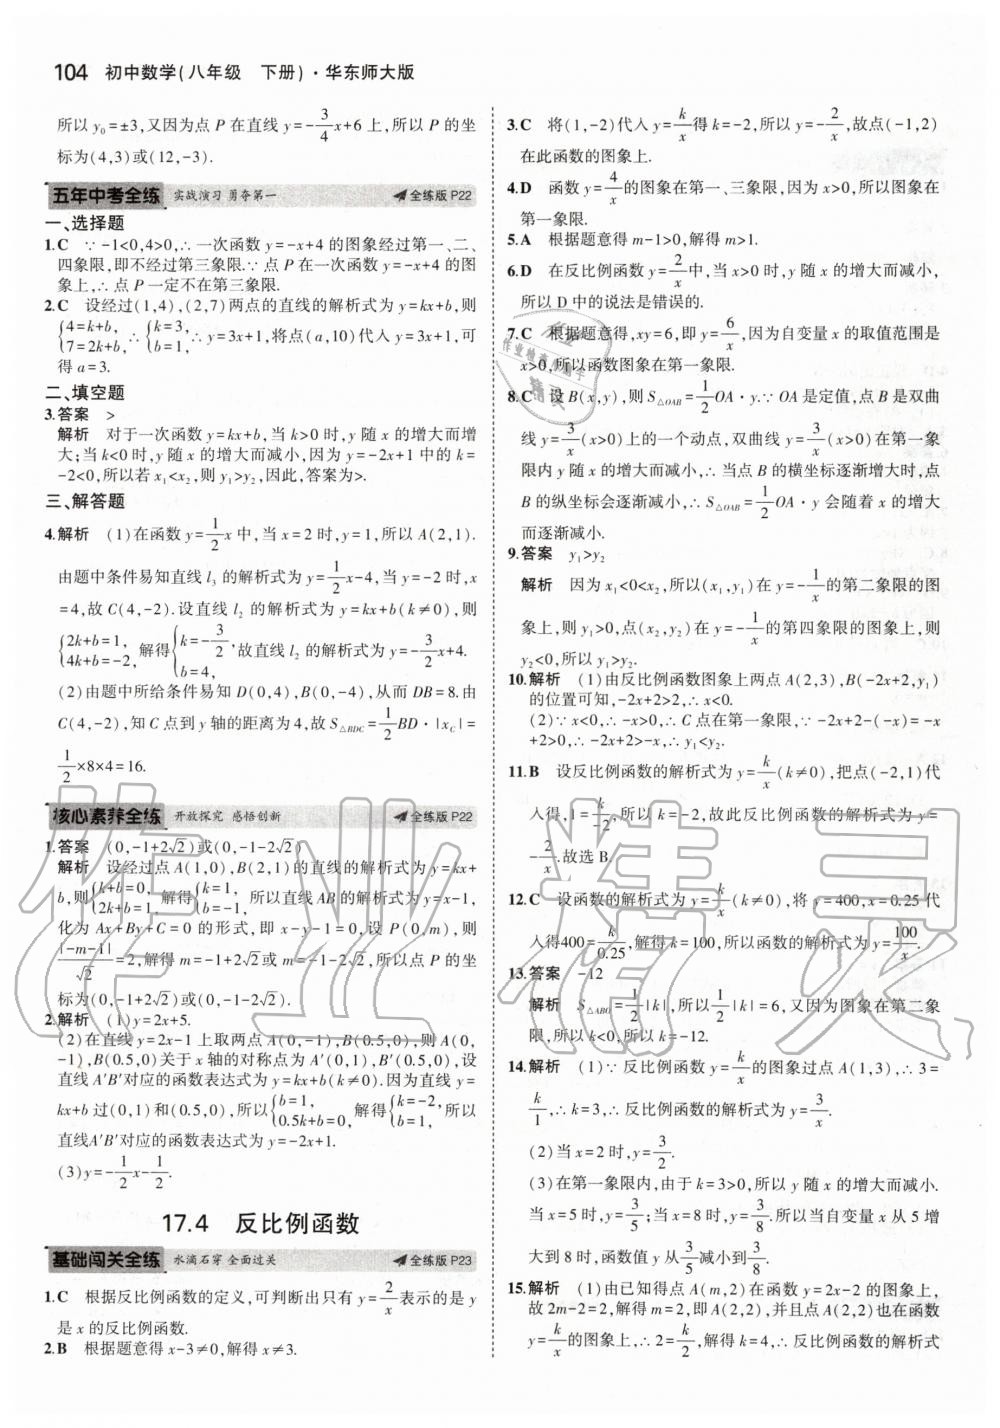 104 初中数学(八年级 下册)·华东师大版
所以 y₀=±3,又因为点 P 在直线 y=-3/4x+6 上,所以 P 的坐
标为(4,3)或(12,-3).
五年中考全练 实战演习 勇夺第一 全练版 P22
一、选择题
1.C ∵ -1<0,4>0,∴ 一次函数 y=-x+4 的图象经过第一、二、
四象限,即不经过第三象限.∵ 点 P 在一次函数 y=-x+4 的图
象上,∴ 点 P 一定不在第三象限.
2.C 设经过(1,4),(2,7)两点的直线的解析式为 y=kx+b,则
{4=k+b, 7=2k+b, ∴ {k=3, b=1, ∴ y=3x+1,将点(a,10)代入 y=3x+1,可
得 a=3.
二、填空题
3.答案 >
解析 对于一次函数 y=kx+b,当 k>0 时,y 随 x 的增大而增
大;当 k<0 时,y 随 x 的增大而减小,因为 y=-2x+1 中的 k=
-2<0,所以若 x₁<x₂,则 y₁>y₂,因此,答案为>.
三、解答题
4.解析 (1)在函数 y=1/2x 中,当 x=2 时,y=1,所以 A(2,1).
由题中条件易知直线 l₃ 的解析式为 y=1/2x-4,当 y=-2 时,x
=4,故 C(4,-2).设直线 l₂ 的解析式为 y=kx+b(k≠0),则
{2k+b=1, 4k+b=-2, 解得 {k=-3/2, b=4, 故直线 l₂ 的解析式为 y=-3/2x+4.
(2)由题中所给条件易知 D(0,4),B(0,-4),从而 DB=8.由
C(4,-2),知 C 点到 y 轴的距离为 4,故 S△BDC=1/2BD·|xC|=
1/2×8×4=16.
核心素养全练 开放探究 感悟创新 全练版 P22
1.答案 (0,-1+2√2)或(0,-1-2√2)
解析 设经过点 A(1,0),B(2,1)的直线的解析式为 y=kx+
b,则{k+b=0, 2k+b=1, 解得{k=1, b=-1, 所以直线 AB 的解析式为 y=x-1,
化为 Ax+By+C=0 的形式,即 x-y-1=0,设 P(0,m),则
|-m-1|/√2=2,解得 m=-1+2√2或 m=-1-2√2,所以点 P 的坐
标为(0,-1+2√2)或(0,-1-2√2).
2.解析 (1)y=2x+5.
(2)在直线 y=2x-1 上取两点 A(0,-1),B(0.5,0),则 A(0,
-1),B(0.5,0)关于 x 轴的对称点为 A′(0,1),B′(0.5,0),设
直线 A′B′对应的函数表达式为 y=kx+b(k≠0).因为直线 y=
kx+b 过(0,1)和(0.5,0),所以{b=1, 0.5k+b=0, 解得{k=-2, b=1, 所以
直线A′B′对应的函数表达式为 y=-2x+1.
(3)y=-1/2x-1/2.
17.4 反比例函数
基础闯关全练 水滴石穿 全面过关 全练版 P23
1.C 根据反比例函数的定义,可判断出只有 y=2/x表示的是 y
是 x 的反比例函数.
2.B 根据题意得 x-3≠0,解得 x≠3.
3.C 将(1,-2)代入 y=k/x得 k=-2,所以 y=-2/x,故点(-1,2)
在此函数的图象上.
4.D 函数 y=4/x的图象在第一、三象限,因为 x>0,所以图象在
第一象限.
5.A 根据题意得 m-1>0,解得 m>1.
6.D 在反比例函数 y=2/x中,当 x>0 时,y 随 x 的增大而减小,
所以 D 中的说法是错误的.
7.C 根据题意得,xy=6,即 y=6/x,因为自变量 x 的取值范围是
x>0,所以函数图象在第一象限.
8.C 设 B(x,y),则 S△OAB=1/2OA·y.∵ OA 是定值,点 B 是双曲
线 y=3/x(x>0)上的一个动点,双曲线 y=3/x(x>0)在第一象
限内 y 随 x 的增大而减小,∴ 当点 B 的横坐标逐渐增大时,点
B 的纵坐标会逐渐减小,∴ S△OAB=1/2OA·y 会随着 x 的增大
而逐渐减小.
9.答案 y₁>y₂
解析 因为 x₁<0<x₂,所以(x₁,y₁)在 y=-1/x的第二象限的图
象上,则 y₁>0,点(x₂,y₂)在 y=-1/x的第四象限的图象上,则
y₂<0,所以 y₁>y₂.
10.解析 (1)由反比例函数图象上两点 A(2,3),B(-2x+2,y₁)
的位置可知,-2x+2>2,∴ x<0.
(2)∵ x<0,∴ -x>0,∴ C 点在第一象限,∵ -2x+2-(-x)=-x
+2>0,∴ -2x+2>-x,∴ y₁<y₂.
11.B 设反比例函数的解析式为 y=k/x(k≠0),把点(-2,1)代
入得,1=k/-2,所以 k=-2,故此反比例函数的解析式为 y=
-2/x.故选 B.
12.C 设函数的解析式为 y=k/x(k≠0),将 y=400,x=0.25 代
入得400=k/0.25,解得 k=100,所以函数的解析式为 y=100/x.
13.答案 -12
解析 S△ABO=1/2|k|,所以1/2|k|=6,又因为图象在第二象
限,所以 k<0,所以 k=-12.
14.解析 (1)∵ 反比例函数 y=k/x的图象过点 A(1,3),∴ 3=
k/1,∴ k=3,∴ 反比例函数的解析式为 y=3/x.
(2)当 x=2 时,y=3/2.
(3)在第一象限内,由于 k=3>0,所以 y 随 x 的增大而减小.
当 x=5 时,y=3/5;当 x=8 时,y=3/8.所以当 x 从 5 增
大到 8 时,函数值 y 从3/5减小到3/8.
15.解析 (1)由已知得点 A(m,2)在函数 y=2x-2 的图象上,
故 2m-2=2,解得 m=2,即 A(2,2),并且点 A(2,2)也在函数
y=k/x的图象上,∴ 2=k/2,解得 k=4,∴ 反比例函数的解析式
作业精灵